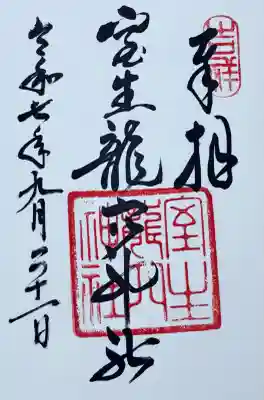 奉拝
吉祥
室生龍穴神社
室生龍穴神社
令和七年九月二十一日